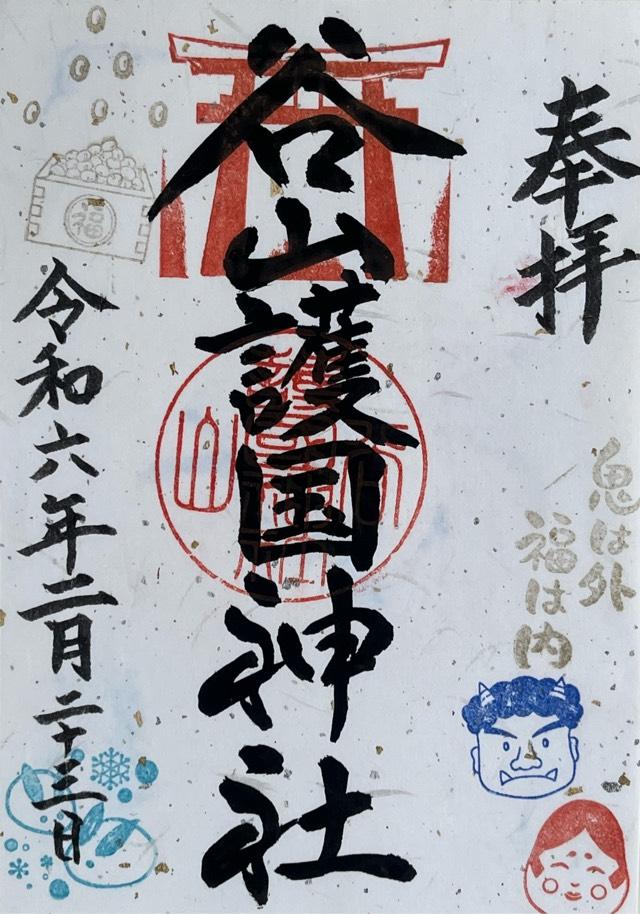 奉拝
鬼は外
福は内
谷山護国神社
福
令和六年二月二十三日